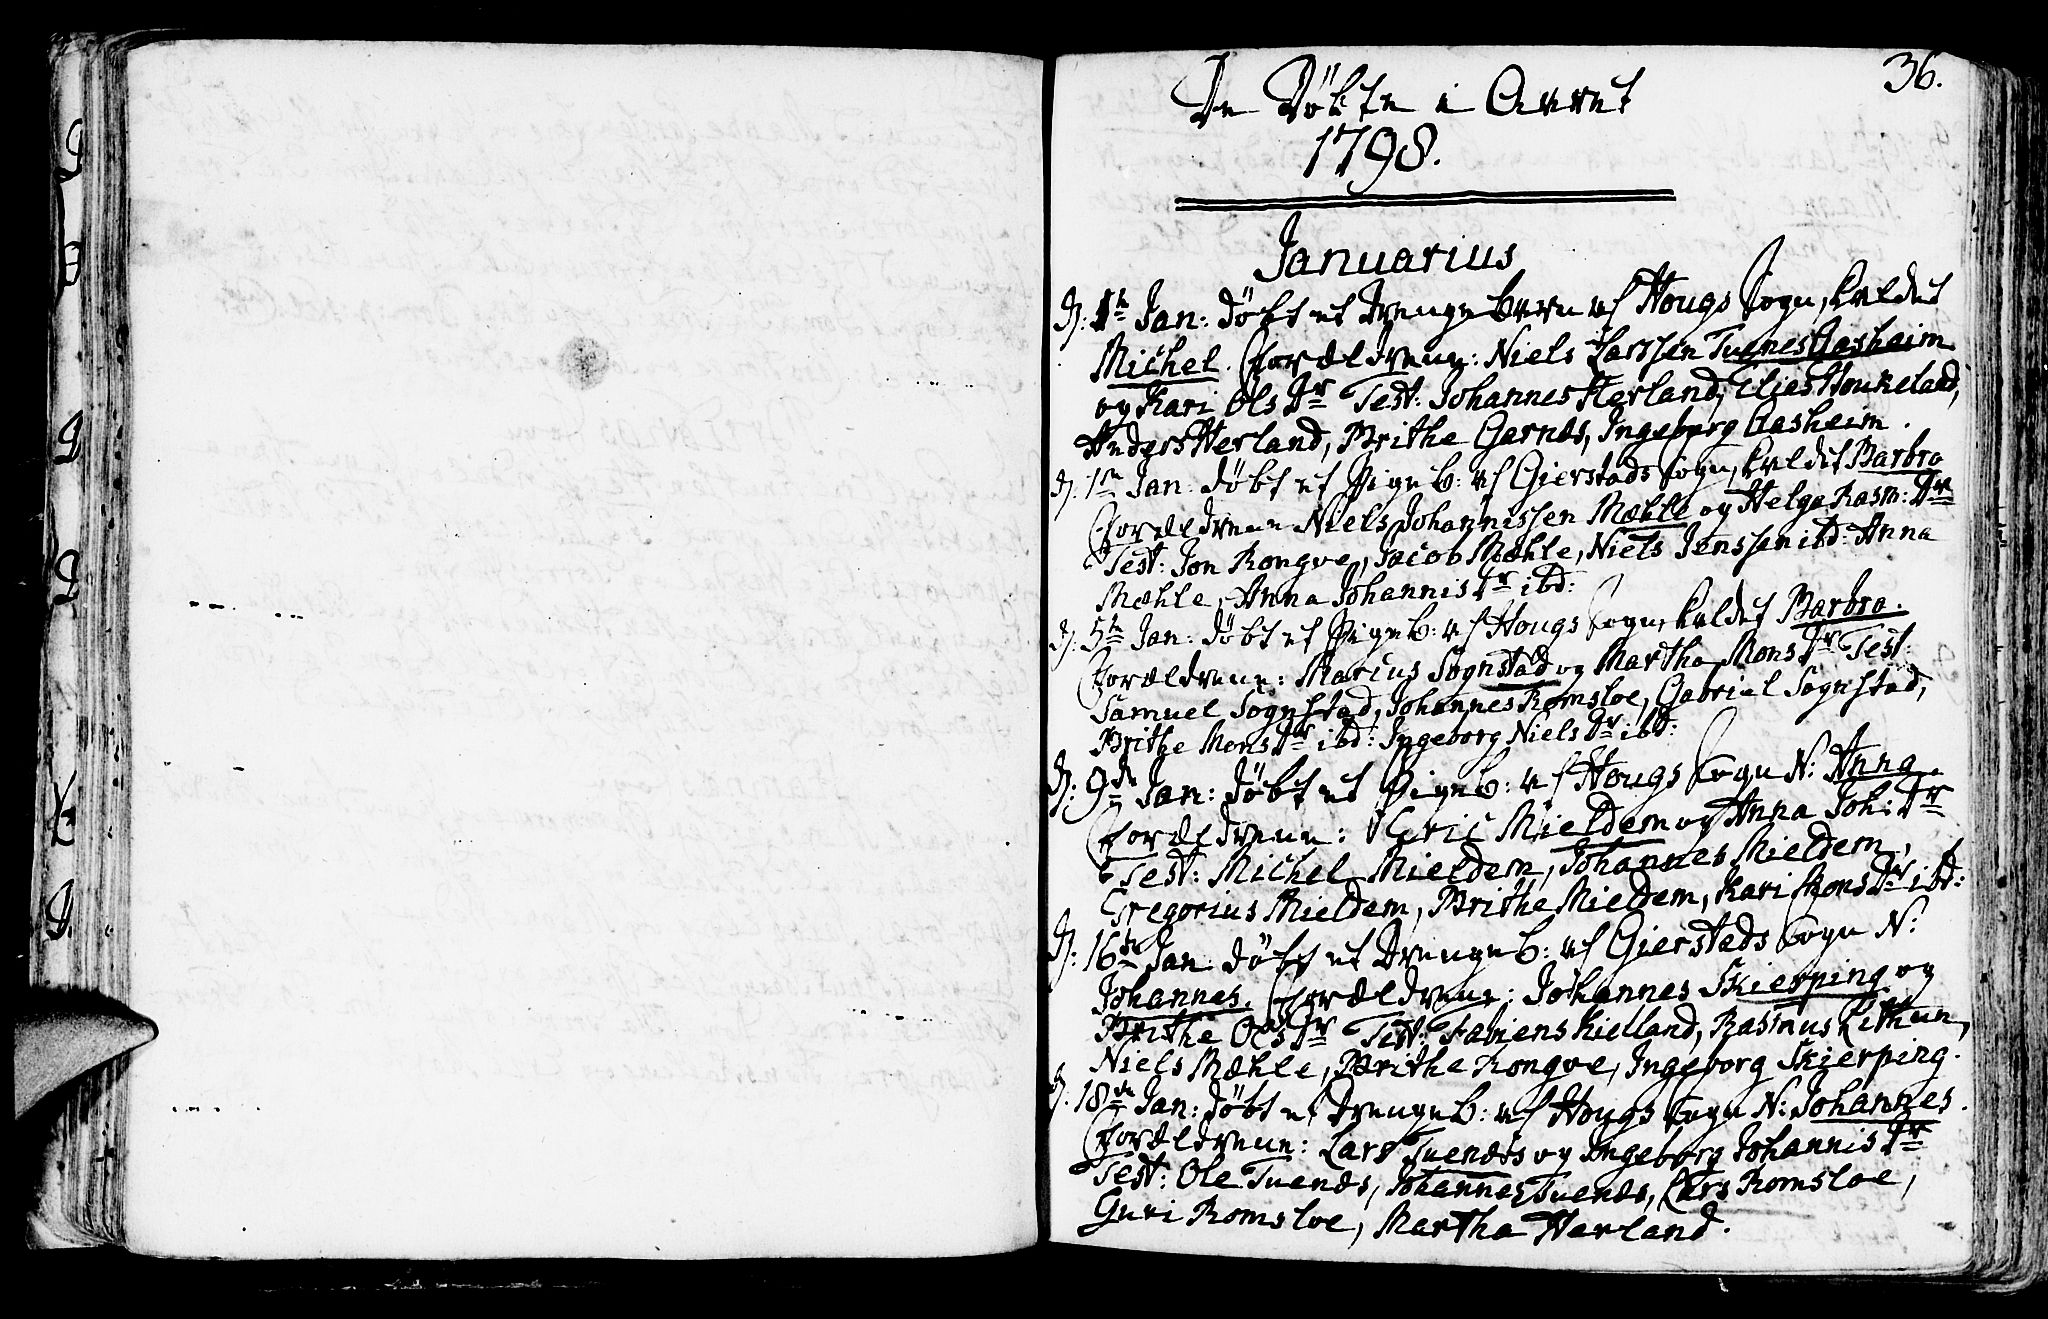 36.
De Döbte i Aaret
1798.
Januarius
D: 1te Jan: döbt et Drengebarn af Hougs Sogn, kaldet
Michel. Forældrene: Niels Larssen Tuenes Gasheim
og Kari Ols Dr Test: Johannes Herland, Elies Houkeland,
Anders Herland, Brithe Garnæs, Ingeborg Gasheim.
D: 1te Jan: döbt et Pigeb: af Gierstads Sogn, kaldet Barbro
Forældrene Niels Johannissen Mæhle og Helga Rasm: Dr
Test: Jon Rongve, Jacob Mæhle, Niels Jenssen ibd: Anna
Mæhle, Anna Johannis Dr ibd:
D: 5te Jan: döbt et Pigeb: af Hougs Sogn, kaldet Barbro.
Forældrene: Marcus Sognstad og Martha Mons Dr Test:
Samuel Sognstad, Johannes Romsloe, Gabriel Sognstad,
Brithe Mons Dr ibd: Ingeborg Niels Dr ibd:
D: 9de Jan: döbt et Pigeb: af Hougs Sogn N: Anna.
Forældrene: Eric Mieldem og Anna Joh: Dr
Test: Michel Mieldem, Johannes Mieldem,
Gregorius Mieldem, Brithe Mieldem, Kari Mons Dr ibd:
D: 16de Jan: döbt et Drengeb: af Gierstads Sogn N:
Johannes. Forældrene: Johannes Skierping og
Brithe Ols Dr Test: Fabien Skielland, Rasmus Lithun,
Niels Mæhle, Brithe Rongve, Ingeborg Skierping.
D: 18de Jan: döbt et Drengeb: af Hougs Sogn N: Johannes.
Forældrene: Lars Tuenæs og Ingeborg Johannis Dr
Test: Ole Tuenæs, Johannes Tuenæs, Lars Romsloe,
Guri Romsloe, Martha Herland.